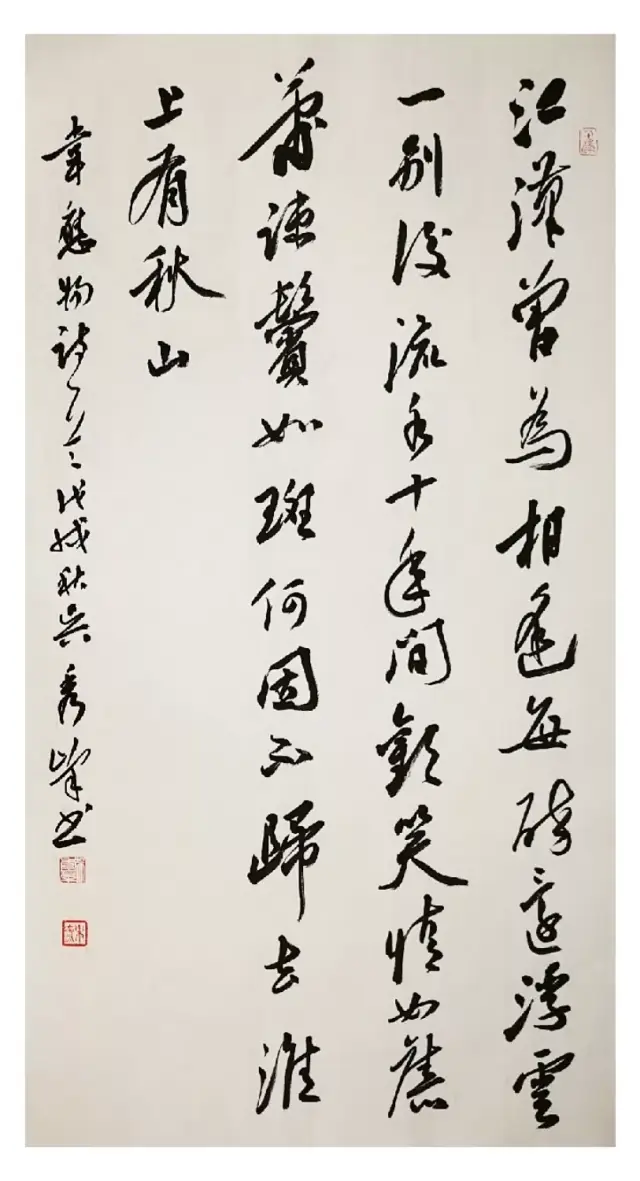 江漢曾為相逢每醉還浮雲
一別後流水十年間歡笑情如舊
蕭疎鬢如斑何因不歸去淮
上有秋山
韋應物詩一首戊戌秋吴秀峰书